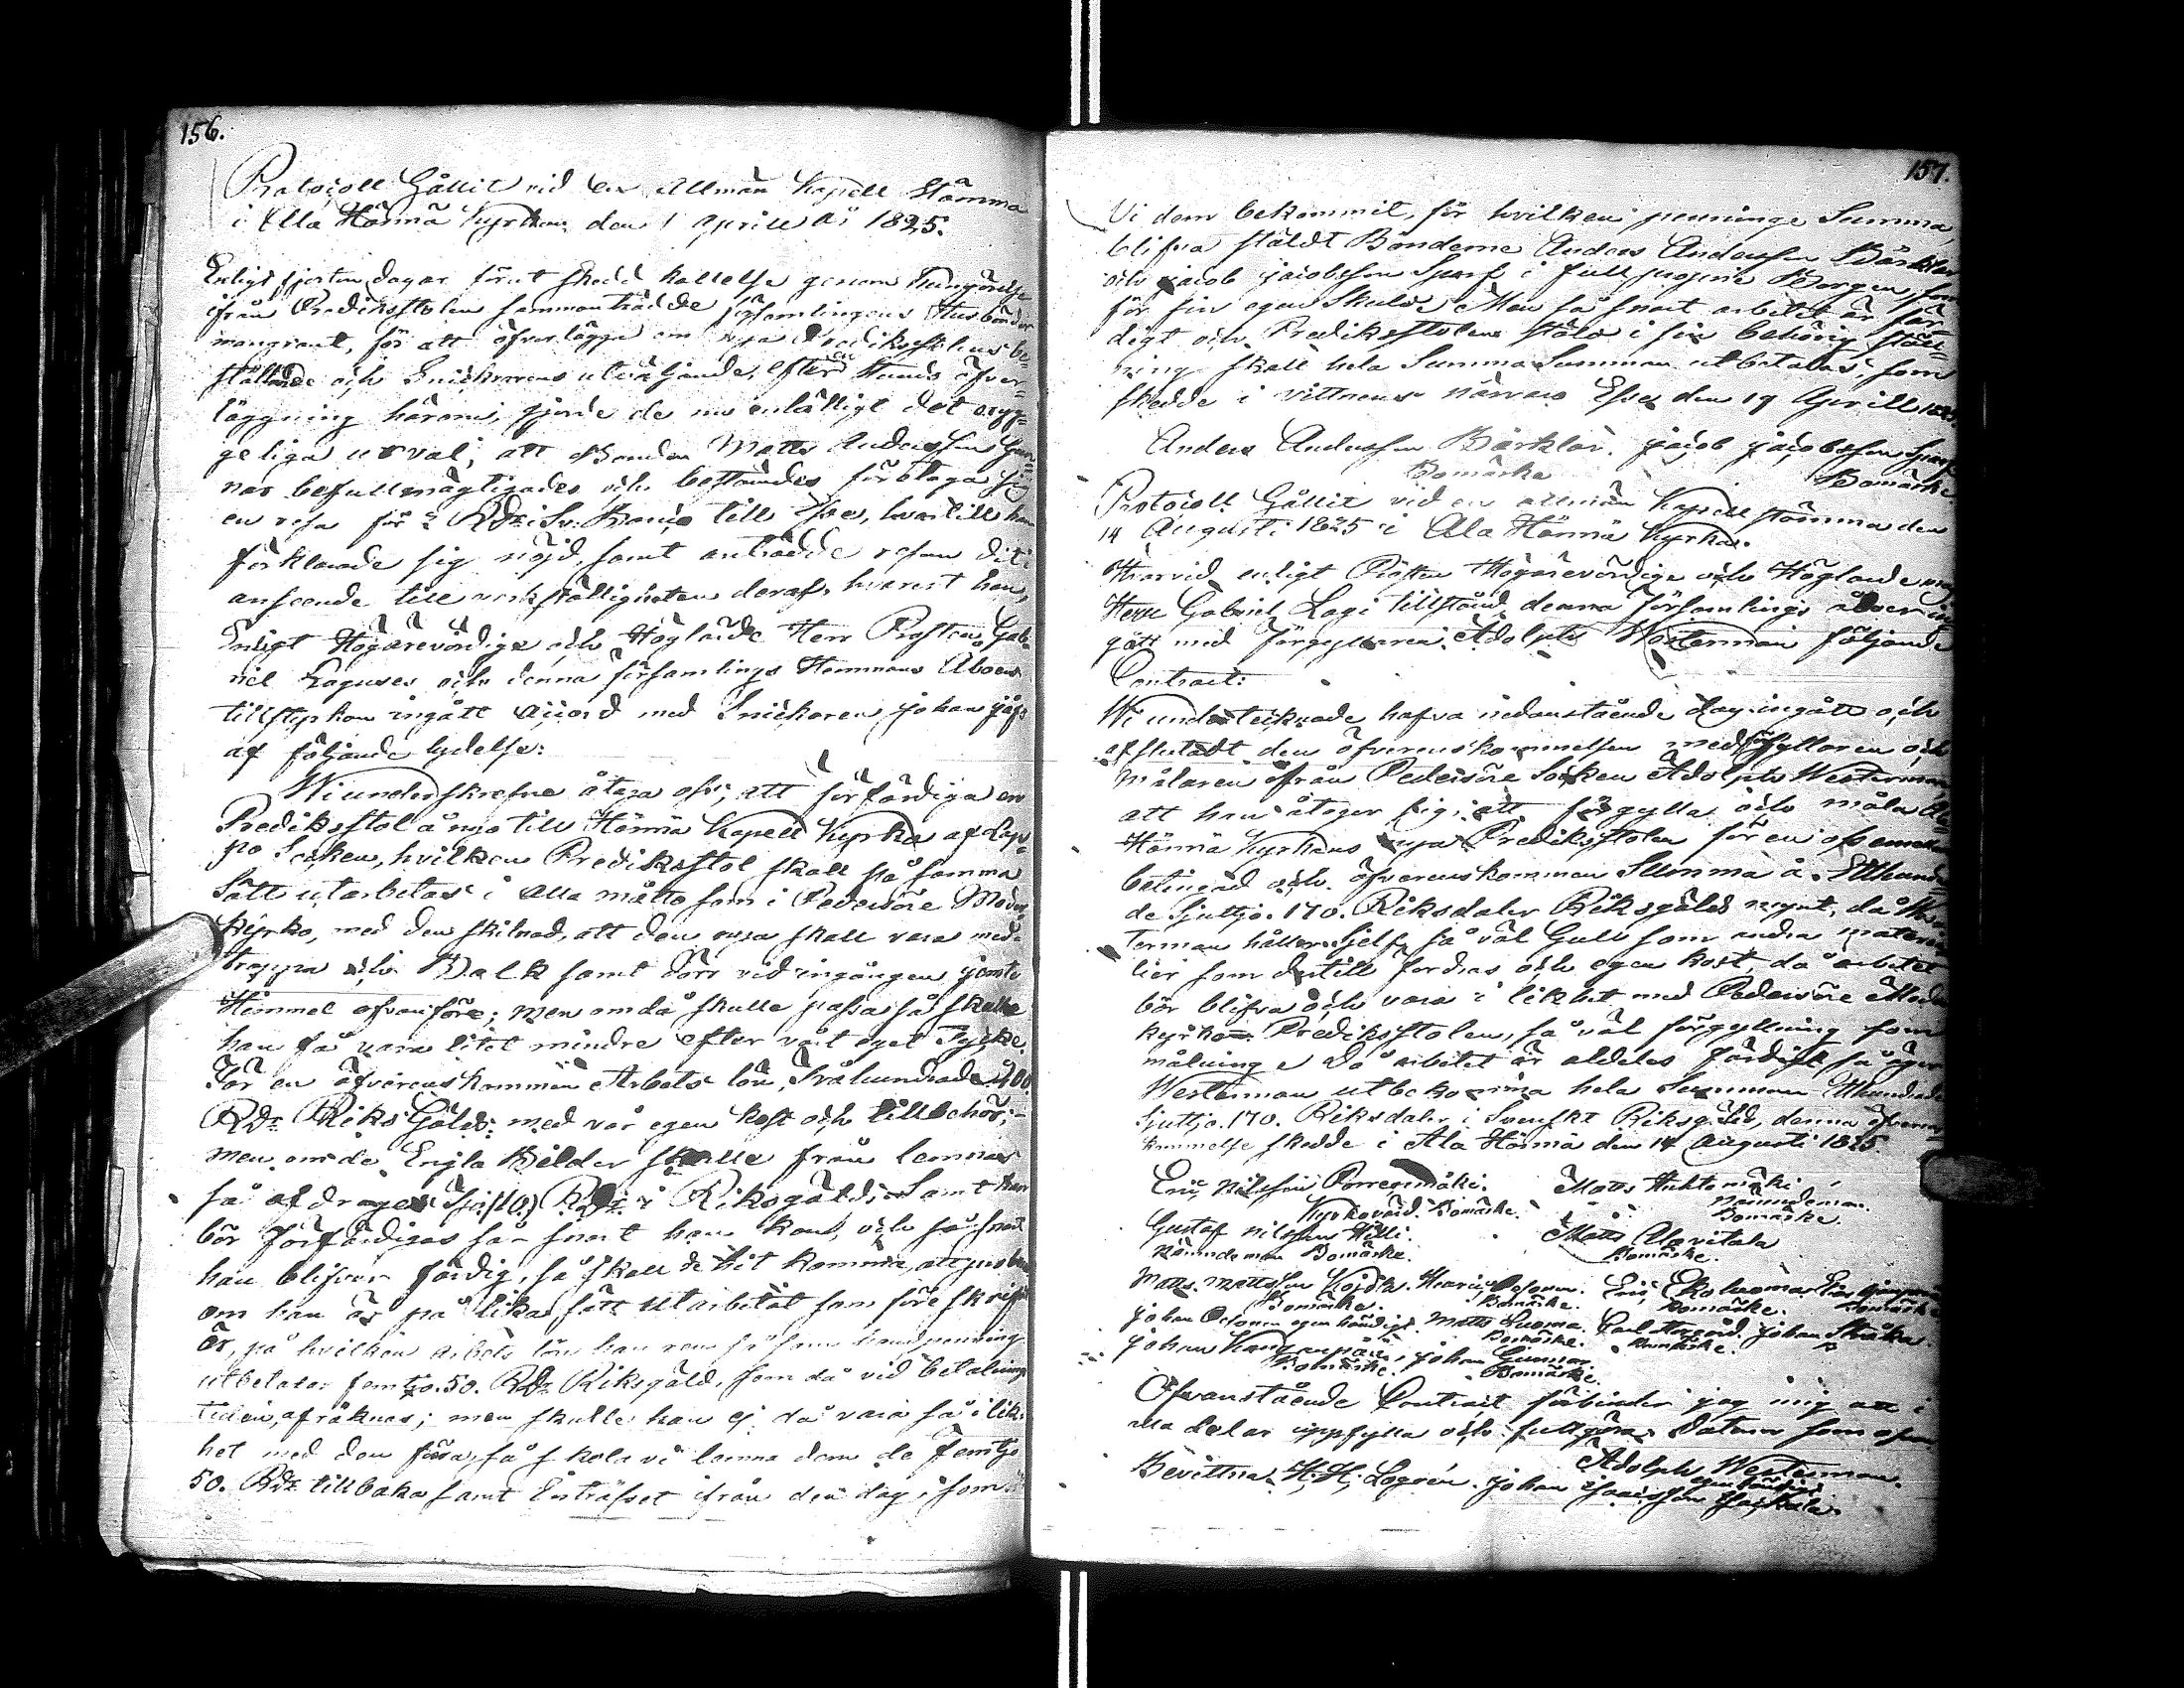 156.
Protocoll hållit vid en Allmän Kapell Stämma
i Ala Härmä Kyrkan den 1 Aprill år 1825.
Enligt fjorton dagar förut skedd kallelse genom Kungörelse
ifrån Predikstolen sammanträdde församlingens Husbönder
mangrant, för att öfverlägga om nya Predikostolens be-
ställande och Snickarens utväljande, efter en stunds öfver-
läggning härom, gjorde de nu enhälligt det oryg-
geliga urval, att Bonden Matts Andersson Gun-
nar befullmägtigades och bestämdes företaga sig
en resa för 2 Rdr Sv. Banco till Esse, hvartill han
förklarade sig nöjd, samt anträdde resan dit i
anseende till verkställigheten deraf, hvarest han,
Enligt Högärevördige och Höglärde Herr Prosten Gab-
riel Laguses och denna församlings Hemmans Åboers
tillstyrkan ingått accord med Snickaren Johan
af följande lydelse:
Wi underskrefne åtaga oss, att förfärdiga en
Predikstol å nyo till Härmä Kapell Kyrka af Lap-
po Socken, hvilken Predikostol skall på samma
sätt utarbetas i alla måtto som i Pedersöre Moder
kyrko, med den skilnad, att den nya skall vara med
trappa och Balk samt dörr vid ingången jemte
Himmel ofvanföre; men om då skulle passa så skulle
han få vara litet mindre efter vårt eget Tycke.
För en öfverenskommen Arbets lön, Tvåhundrade
Rdr Riks Gälds med vår egen kost och tillbehör;
men om de Engla Bilder skulle från lemnas
så afdrages Tio (10) Rdr i Riksgälds. Samt han
bör förfärdigas så snart han kan, och så snart
han blifver färdig, så skall de hit komma, att
om han är på lika sätt Utarbetat som föreskrifvit
är, på hvilken arbets lön han som handpenning
utbetalas femtjo. 50. Rdr Riksgäld, som då vid betalnings
tiden, afräknas; men skulle han ej då vara så i lik-
het med den förra, så skola vi lemna dem de femtjo
50. Rdr tillbaka samt Inträsset ifrån den dag, som
157.
Vi dem bekommit, för hvilken penninge Summa,
blifva stäldt Bönderne Anders Andersson Bärklar
och Jacob Jacobsson Sparf i full Borgen, som
för sin egen Skuld; Men så snart arbetet är fär-
digt och Predikstolen stäld i sin behörig ställ-
ning skall hela Summa Summan utbetalas, som
skedde i vittnens närvaro Esse den 19 Aprill 1825.
Anders Andersson Bärklar. Jacob Jacobsson Sparf
Bomärke Bomärke
Protocoll hållit vid en allmän Kapell stämma den
14 Augusti 1825 i Ala Härmä Kyrka.
Hvarvid enligt Prosten Högärevördige och Höglärde
Herr Gabriel Lagi tillstånd, denna församlings åboer in
gått med förgyllaren Adolph Westerman följande
Contract:
Wi undertecknade hafva nedanstående dag ingått och
afslutadt den öfverenskommelsen med förgyllaren och
Målaren ifrån Pedersöre Socken Adolph Westerman
att han åtager sig, att förgylla och måla Ala
Härmä Kyrkans nya Predikstolen för en oss emellan
betingad och öfverenskommen Summa à Etthundra
de Sjuttjo. 170. Riksdaler Riksgälds mynt, då Wes-
terman håller Sjelf så väl Gull som andra materia
lier som dertill fordras och egen kost, då arbetet
bör blifva och vara i likhet med Pedersöre Moder
kyrko Predikstolen, så väl förgyllning som
målning. Då arbetet är aldeles färdigt, så äger
Westerman utbekomma hela Summan Etthundrade
Sjuttjo. 170. Riksdaler i Svenskt Riksgäld, denna öfverens
kommelse skedde i Ala Härmä den 14 Augusti 1825.
Eric Nilsson Porrenmäki. Matts Huhtamäki
Kyrkovärd. Bomärke. Nämndeman.
Bomärke.
Gustaf Nilsson Hilli. Matts Alavitala
Nämndeman Bomärke. Bomärke.
Matts Mattsson Kojola. Eric Ekoluoma Elias
Bomärke. Bomärke. Bomärke. Bomärke
Johan egenhändigt. Matts Luoma. Carl Johan
Bomärke. Bomärke.
Johan Kangenpää. Johan Gunnar.
Bomärke. Bomärke.
Ofvanstående Contract förbinder jag mig att i
alla delar uppfylla och fullgöra. Datum som ofvan
Adolph Westerman.
egenhändigt
Bevittna. H. H. Logrén. Johan Isacsson